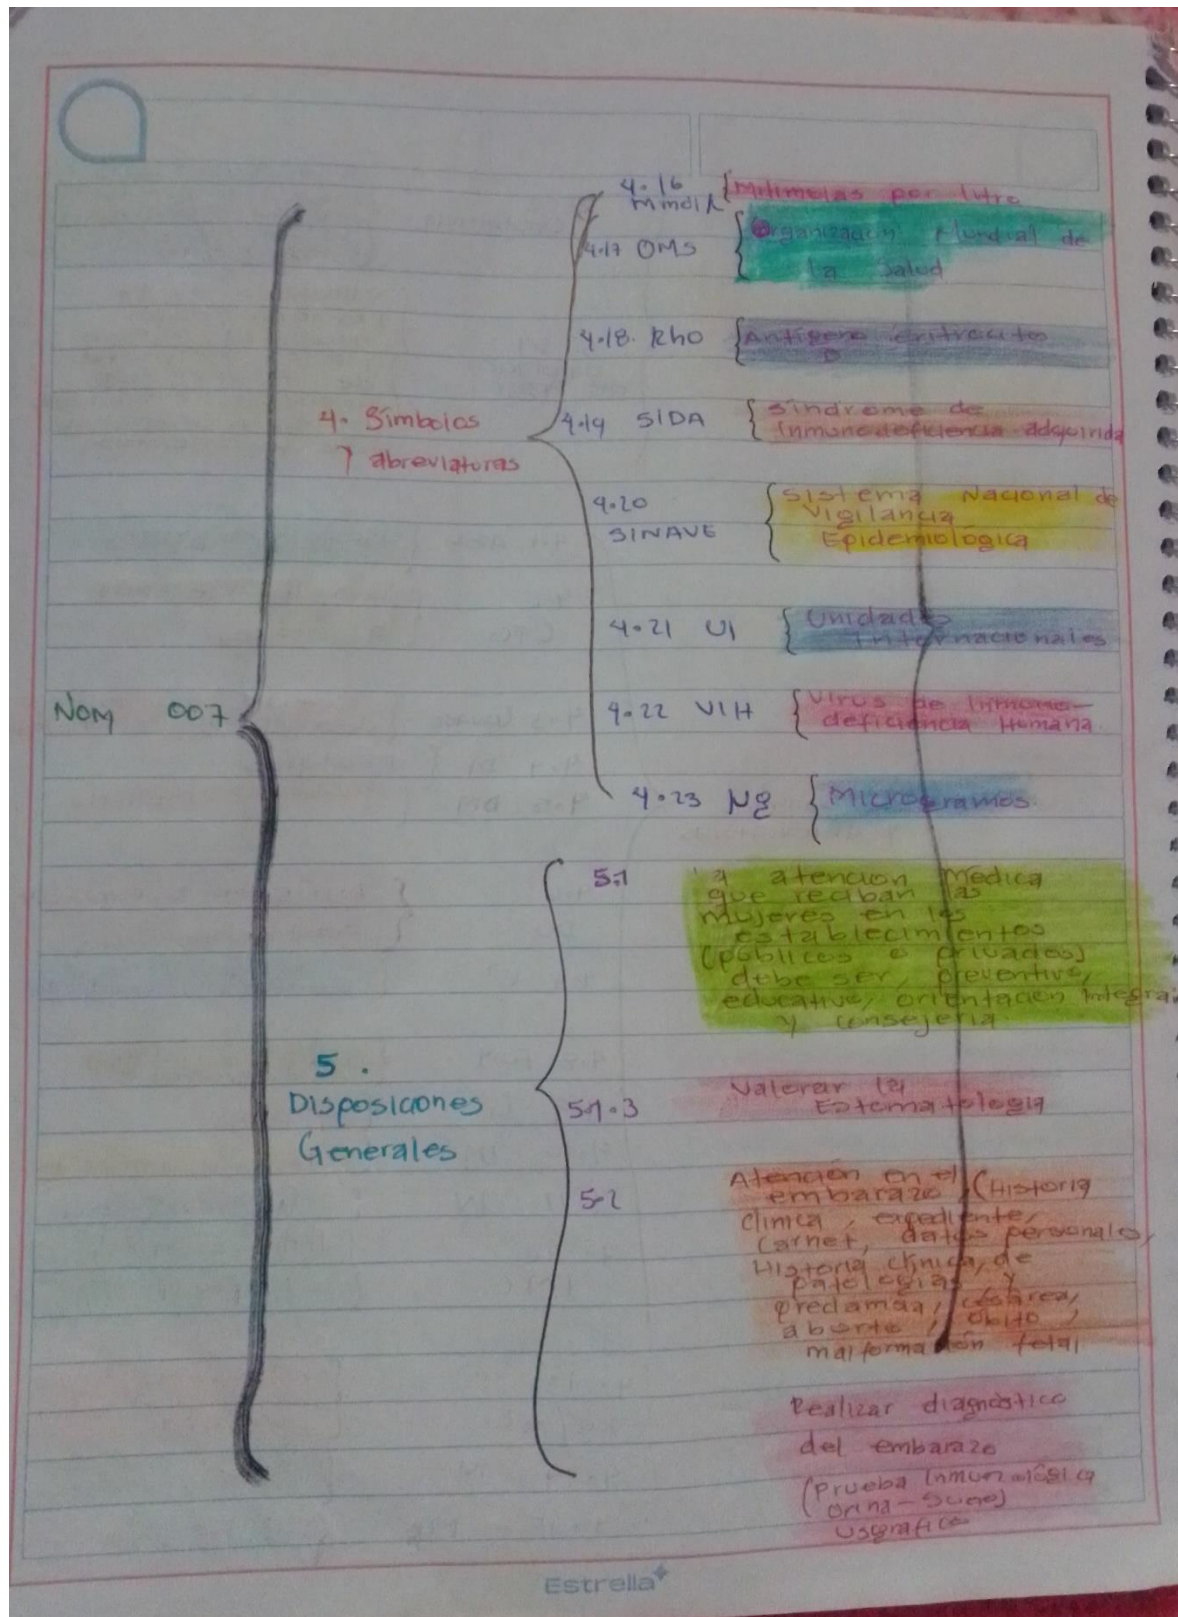 4.16
mmol/L { Milimolas por litro
4.17 OMS { Organizacion Mundial de
la Salud
4.18. Rho { Antigeno eritrocito
D
4. Símbolos
y abreviaturas
4.19 SIDA { Síndrome de
Inmunodeficiencia adquirida
4.20
SINAVE { Sistema Nacional de
Vigilancia
Epidemiológica
4.21 UI { Unidades
Internacionales
NOM 007
4.22 VIH { Virus de Inmuno-
deficiencia Humana.
4.23 Ng { Microgramos.
5.1 la atencion Medica
que reciban las
mujeres en los
establecimientos
(públicos o privados)
debe ser, preventiva,
educativa, orientacion integral
y consejeria
5.
Disposiciones
Generales
5.1.3 Valorar la
Estomatologia
5.2 Atención en el
embarazo (Historia
clinica, expediente,
carnet, datos personales,
Historia clinica, de
patologias y
preclamsia, cesárea,
aborto, óbito,
malformación fetal
Realizar diagnóstico
del embarazo
(Prueba Inmunológica
orina-
usgrafico
Estrella